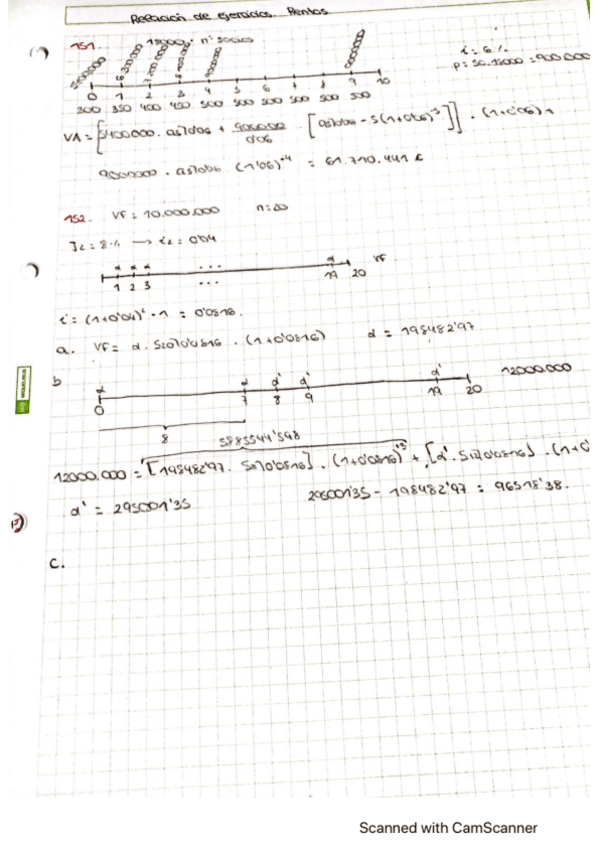 Relación de ejercicios. Rentas
151. 18000 · n = 50000
i = 6%
p = 50·18000 = 900.000
0 1 2 3 4 5 6 7 8 9 10
300 350 400 450 500 500 500 500 500 500
VA = [5400000 · a5⌉0'06 + 900000/0'06 · [a5⌉0'06 - 5(1+0'06)^-5]] · (1+0'06) +
9000000 · a5⌉0'06 (1'06)^-4 = 61.710.441 €
152. VF = 10.000.000 n=20
J2 = 8% → i2 = 0'04
α α α ... α VF
1 2 3 ... 19 20
i = (1+0'04)² - 1 = 0'0816.
a. VF = α · S20⌉0'0816 · (1+0'0816) α = 198482'97
b α α α' α' α' 12000.000
0 7 8 9 19 20
8 5885544'548
12000.000 = [198482'97 · S8⌉0'0816] · (1+0'0816)^13 + [α' · S12⌉0'0816] · (1+0'
α' = 295001'35 295001'35 - 198482'97 = 96518'38.
c.
Scanned with CamScanner